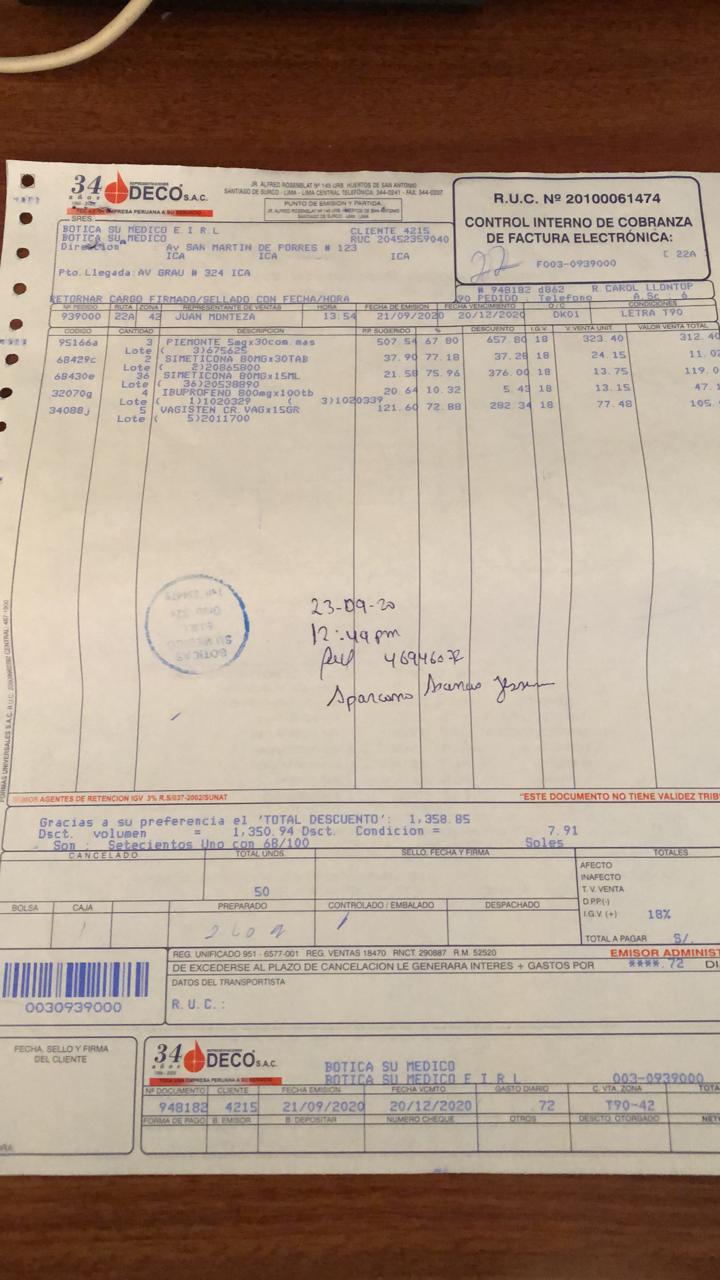 34 años
REPRESENTACIONES
DECO S.A.C.
TODA UNA EMPRESA PERUANA A SU SERVICIO
JR. ALFRED ROSENBLAT Nº 145 URB. HUERTOS DE SAN ANTONIO
SANTIAGO DE SURCO - LIMA - LIMA CENTRAL TELEFÓNICA: 344-0241 - FAX: 344-0207
PUNTO DE EMISIÓN Y PARTIDA:
JR. ALFRED ROSENBLAT Nº 145 URB. HUERTOS DE SAN ANTONIO
SANTIAGO DE SURCO LIMA LIMA
R.U.C. Nº 20100061474
CONTROL INTERNO DE COBRANZA
DE FACTURA ELECTRÓNICA:
22
F003-0939000
( 22A
SRES
BOTICA SU MEDICO E I R L CLIENTE 4215
BOTICA SU MEDICO RUC 20452359040
Direccion : Av SAN MARTIN DE PORRES # 123
ICA ICA ICA
Pto. Llegada: AV GRAU # 324 ICA
# 948182 d862 R. CAROL LLONTOP
RETORNAR CARGO FIRMADO/SELLADO CON FECHA/HORA 90 PEDIDO Telefono A.Sc : 6
Nº PEDIDO RUTA ZONA REPRESENTANTE DE VENTAS HORA FECHA DE EMISION FECHA VENCIMIENTO O / C CONDICIONES
939000 22A 42 JUAN MONTEZA 13.54 21/09/2020 20/12/2020 DK01 LETRA T90
CODIGO CANTIDAD DESCRIPCION P.P. SUGERIDO % DESCUENTO I.G.V. V. VENTA UNIT VALOR VENTA TOTAL
95166a 3 PIEMONTE 5mgx30com.mas 507.54 67.80 657.80 18 323.40 312.40
Lote ( 3)675625
68429c 2 SIMETICONA 80MGx30TAB 37.90 77.18 37.28 18 24.15 11.0
Lote ( 2)20865800
68430e 36 SIMETICONA 80MGx15ML 21.58 75.96 376.00 18 13.75 119.0
Lote ( 36)20538890
32070g 4 IBUPROFENO 800mgx100tb 20.64 10.32 5.43 18 13.15 47.1
Lote ( 1)1020329 ( 3)1020339
34088j 5 VAGISTEN CR.VAGx15GR 121.60 72.88 282.34 18 77.48 105.
Lote ( 5)2011700
BOTICAS
SU MEDICO
E.I.R.L
Grau 324
23-09-20
12:49 pm
46946072
FORMAS UNIVERSALES S.A.C.
SOMOS AGENTES DE RETENCION IGV 3% R.S/037-2002/SUNAT
"ESTE DOCUMENTO NO TIENE VALIDEZ TRIB
Gracias a su preferencia el 'TOTAL DESCUENTO': 1,358.85
Dsct. volumen = 1,350.94 Dsct. Condicion = 7.91
Son : Setecientos Uno con 68/100 Soles
CANCELADO TOTAL UNDS. SELLO, FECHA Y FIRMA TOTALES
50
AFECTO
INAFECTO
T. V. VENTA
D.P.P.(-)
I.G.V. (+) 18%
TOTAL A PAGAR S/.
BOLSA CAJA PREPARADO CONTROLADO / EMBALADO DESPACHADO
0030939000
REG. UNIFICADO 951 - 6577-001 REG. VENTAS 18470 RNCT. 290887 R.M. 52520
EMISOR ADMINIST
DE EXCEDERSE AL PLAZO DE CANCELACION LE GENERARA INTERES + GASTOS POR ****.72 DI
DATOS DEL TRANSPORTISTA
R.U.C.:
FECHA, SELLO Y FIRMA
DEL CLIENTE
34 años
REPRESENTACIONES
DECO S.A.C.
TODA UNA EMPRESA PERUANA A SU SERVICIO
BOTICA SU MEDICO
BOTICA SU MEDICO E I R L 003-0939000
Nº DOCUMENTO CLIENTE FECHA EMISION FECHA VCMTO GASTO DIARIO C. VTA. ZONA TOTA
948182 4215 21/09/2020 20/12/2020 .72 T90-42
FORMA DE PAGO B. EMISOR B. DEPOSITAR NUMERO CHEQUE OTROS DESCTO. OTORGADO NET